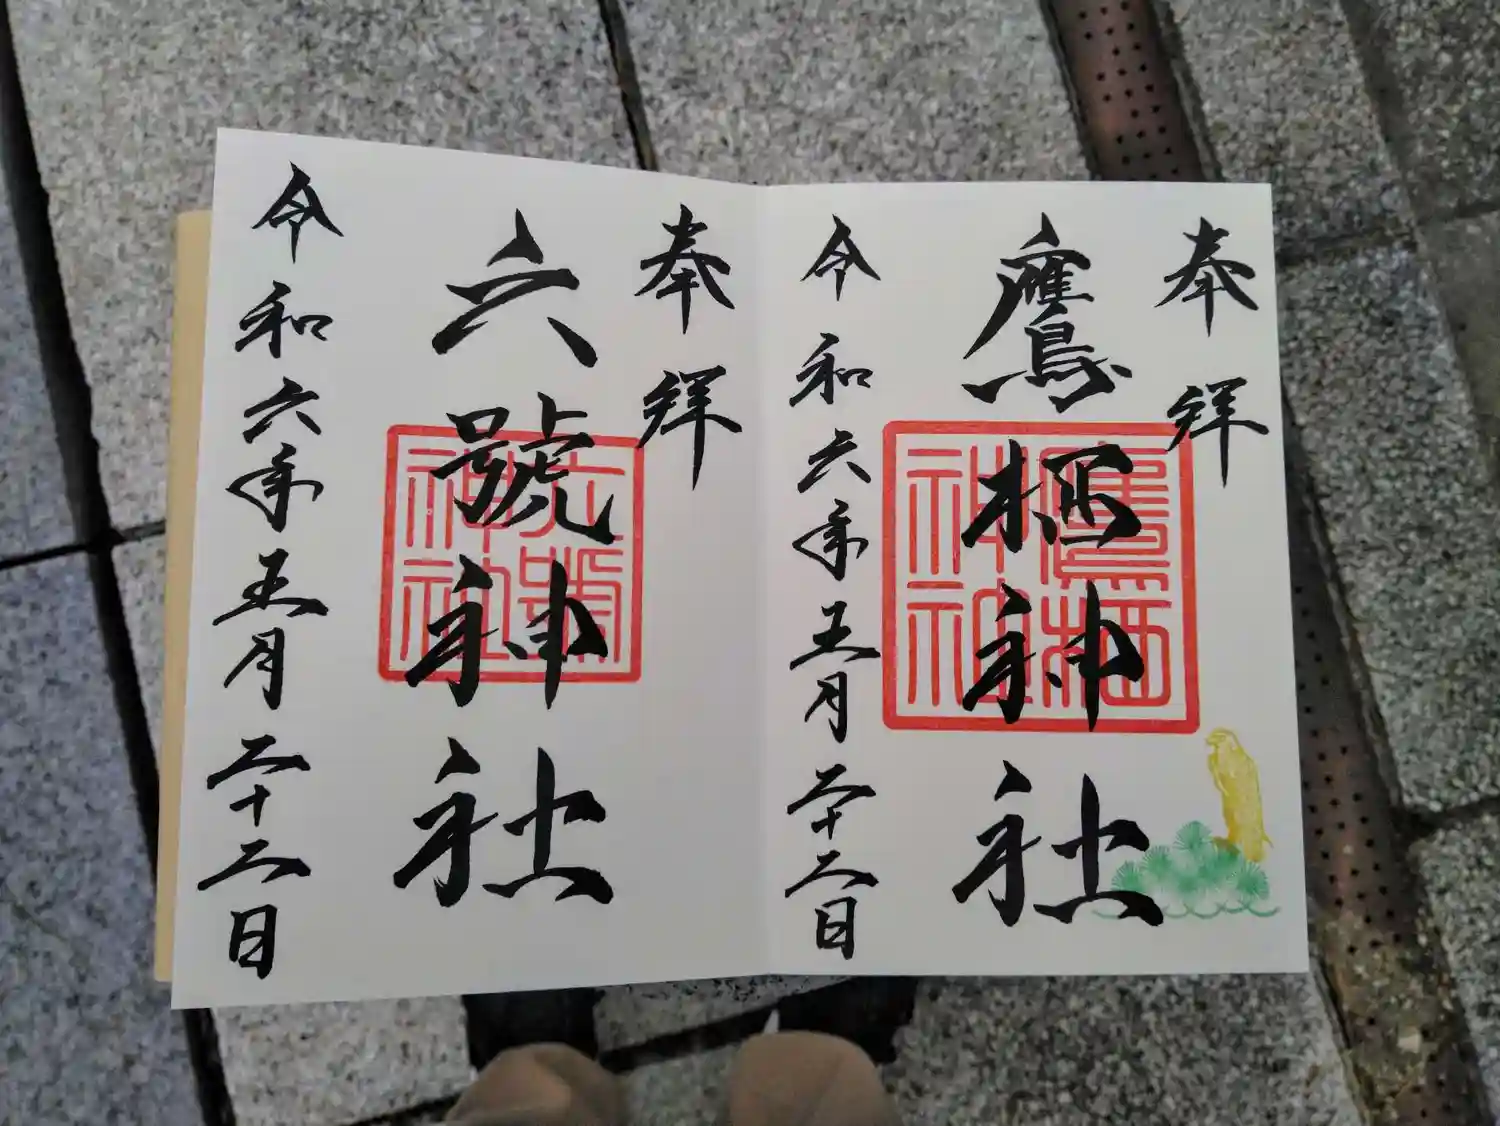 奉拜
鷹栖神社
鷹栖神社
令和六年五月二十二日
奉拜
六號神社
六號神社
令和六年五月二十二日